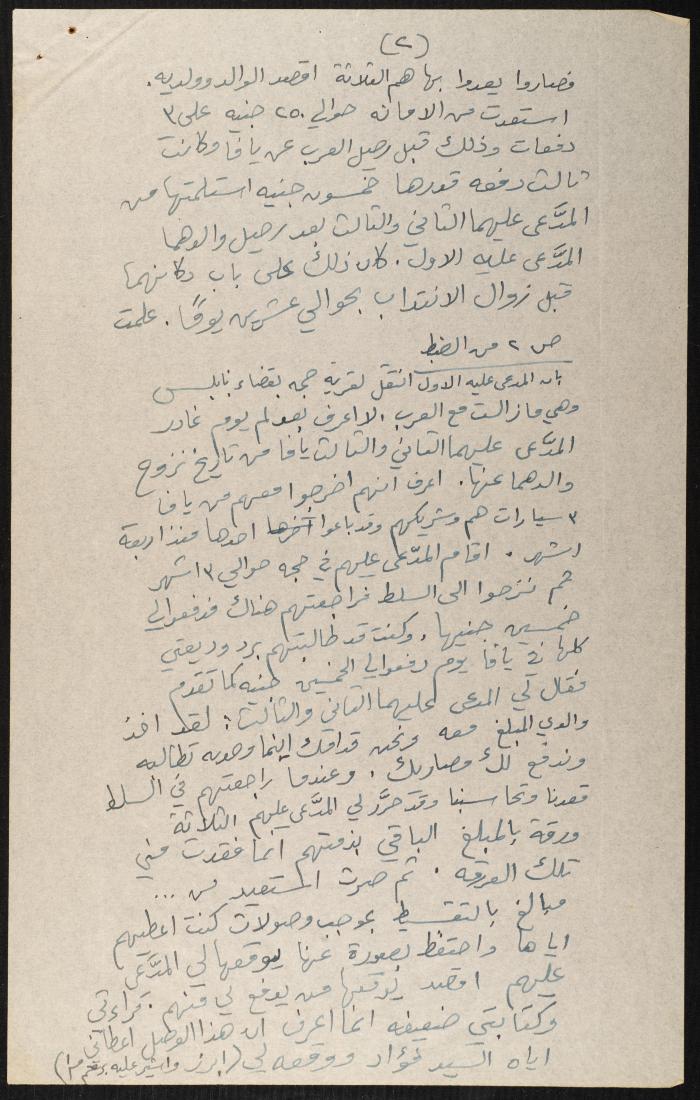 (٢)
فصاروا يعدوا بها هم الثلاثة اقصد الوالد وولديه.
استعدت من الامانه حوالي ٢٥٠ جنيه على ٣
دفعات وذلك قبل رحيل العرب عن يافا وكانت
ثالث دفعه قدرها خمسون جنيه استلمتها من
المدَّعى عليهما الثاني والثالث بعد رحيل والدهما
المدَّعى عليه الاول. كان ذلك على باب دكانهما
قبل زوال الانتداب بحوالي عشرين يومًا. علمت
ص ٢ من الضبط
بان المدعى عليه الاول انتقل لقرية حجه بقضاء نابلس
وهي ما زالت مع العرب. لا اعرف بعد لم يوم غادر
المدَّعى عليهما الثاني والثالث يافا من تاريخ نزوح
والدهما عنها. اعرف انهم اخرجوا معهم من يافا
٣ سيارات هم وشريكهم وقد باعوا آخرها احدها منذ اربعة
اشهر. اقام المدَّعى عليهم في حجه حوالي ٣ اشهر
ثم نزحوا الى السلط فراجعتهم هناك فدفعوا لي
خمسين جنيها. وكنت قد طالبتهم برد وديعتي
كلها في يافا يوم دفعوا لي الخمسين جنيه كما تقدم
فقال لي المدعى عليهما الثاني والثالث: لقد اخذ
والدي المبلغ معه ونحن قدامك اينما وصوبه تطالبه
وندفع لك مصاريك. وعندما راجعتهم في السلط
قعدنا وتحاسبنا وقد حرَّر لي المدَّعى عليهم الثلاثة
ورقة بالمبلغ الباقي بذمتهم انما فقدت مني
تلك الورقه. ثم صرت استعيد من ...
مبالغ بالتقسيط بموجب وصولات كنت اعطيهم
اياها واحتفظ بصورة عنها يوقعها لي المدَّعى
عليهم اقصد يوقعها من يدفع لي منهم. قراءتي
وكتابتي ضعيفه انما اعرف ان هذا الوصل اعطاني
اياه السيد فؤاد ووقعه لي (ابرز واشير عليه برقم م/١)